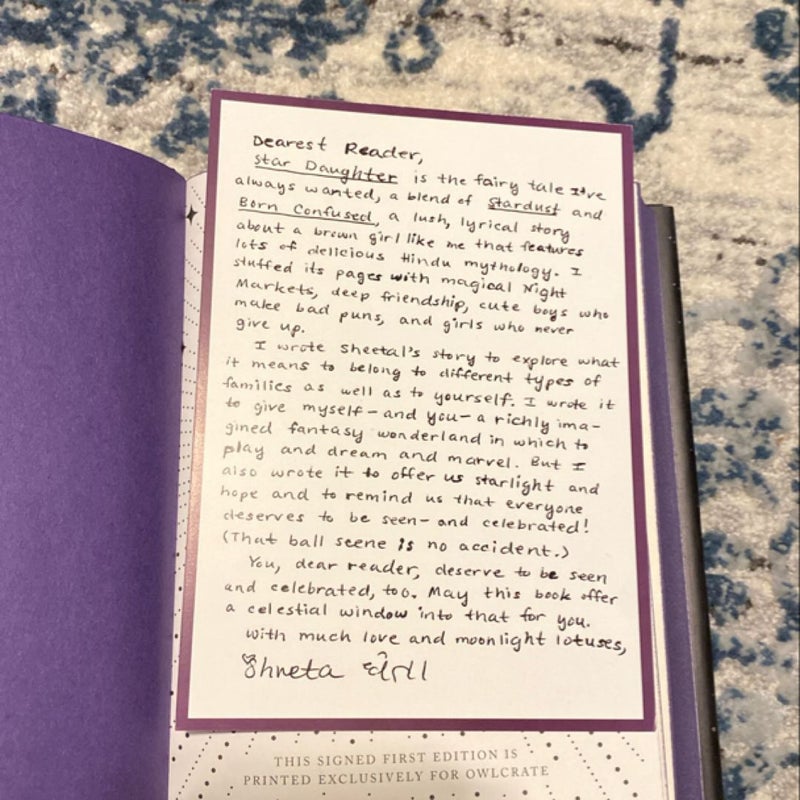 Dearest Reader,
Star Daughter is the fairy tale I've
always wanted, a blend of Stardust and
Born Confused, a lush, lyrical story
about a brown girl like me that features
lots of delicious Hindu mythology. I
stuffed its pages with magical Night
Markets, deep friendship, cute boys who
make bad puns, and girls who never
give up.
I wrote Sheetal's story to explore what
it means to belong to different types of
families as well as to yourself. I wrote it
to give myself—and you—a richly ima-
gined fantasy wonderland in which to
play and dream and marvel. But I
also wrote it to offer us starlight and
hope and to remind us that everyone
deserves to be seen—and celebrated!
(That ball scene is no accident.)
You, dear reader, deserve to be seen
and celebrated, too. May this book offer
a celestial window into that for you.
With much love and moonlight lotuses,
Shveta
THIS SIGNED FIRST EDITION IS
PRINTED EXCLUSIVELY FOR OWLCRATE